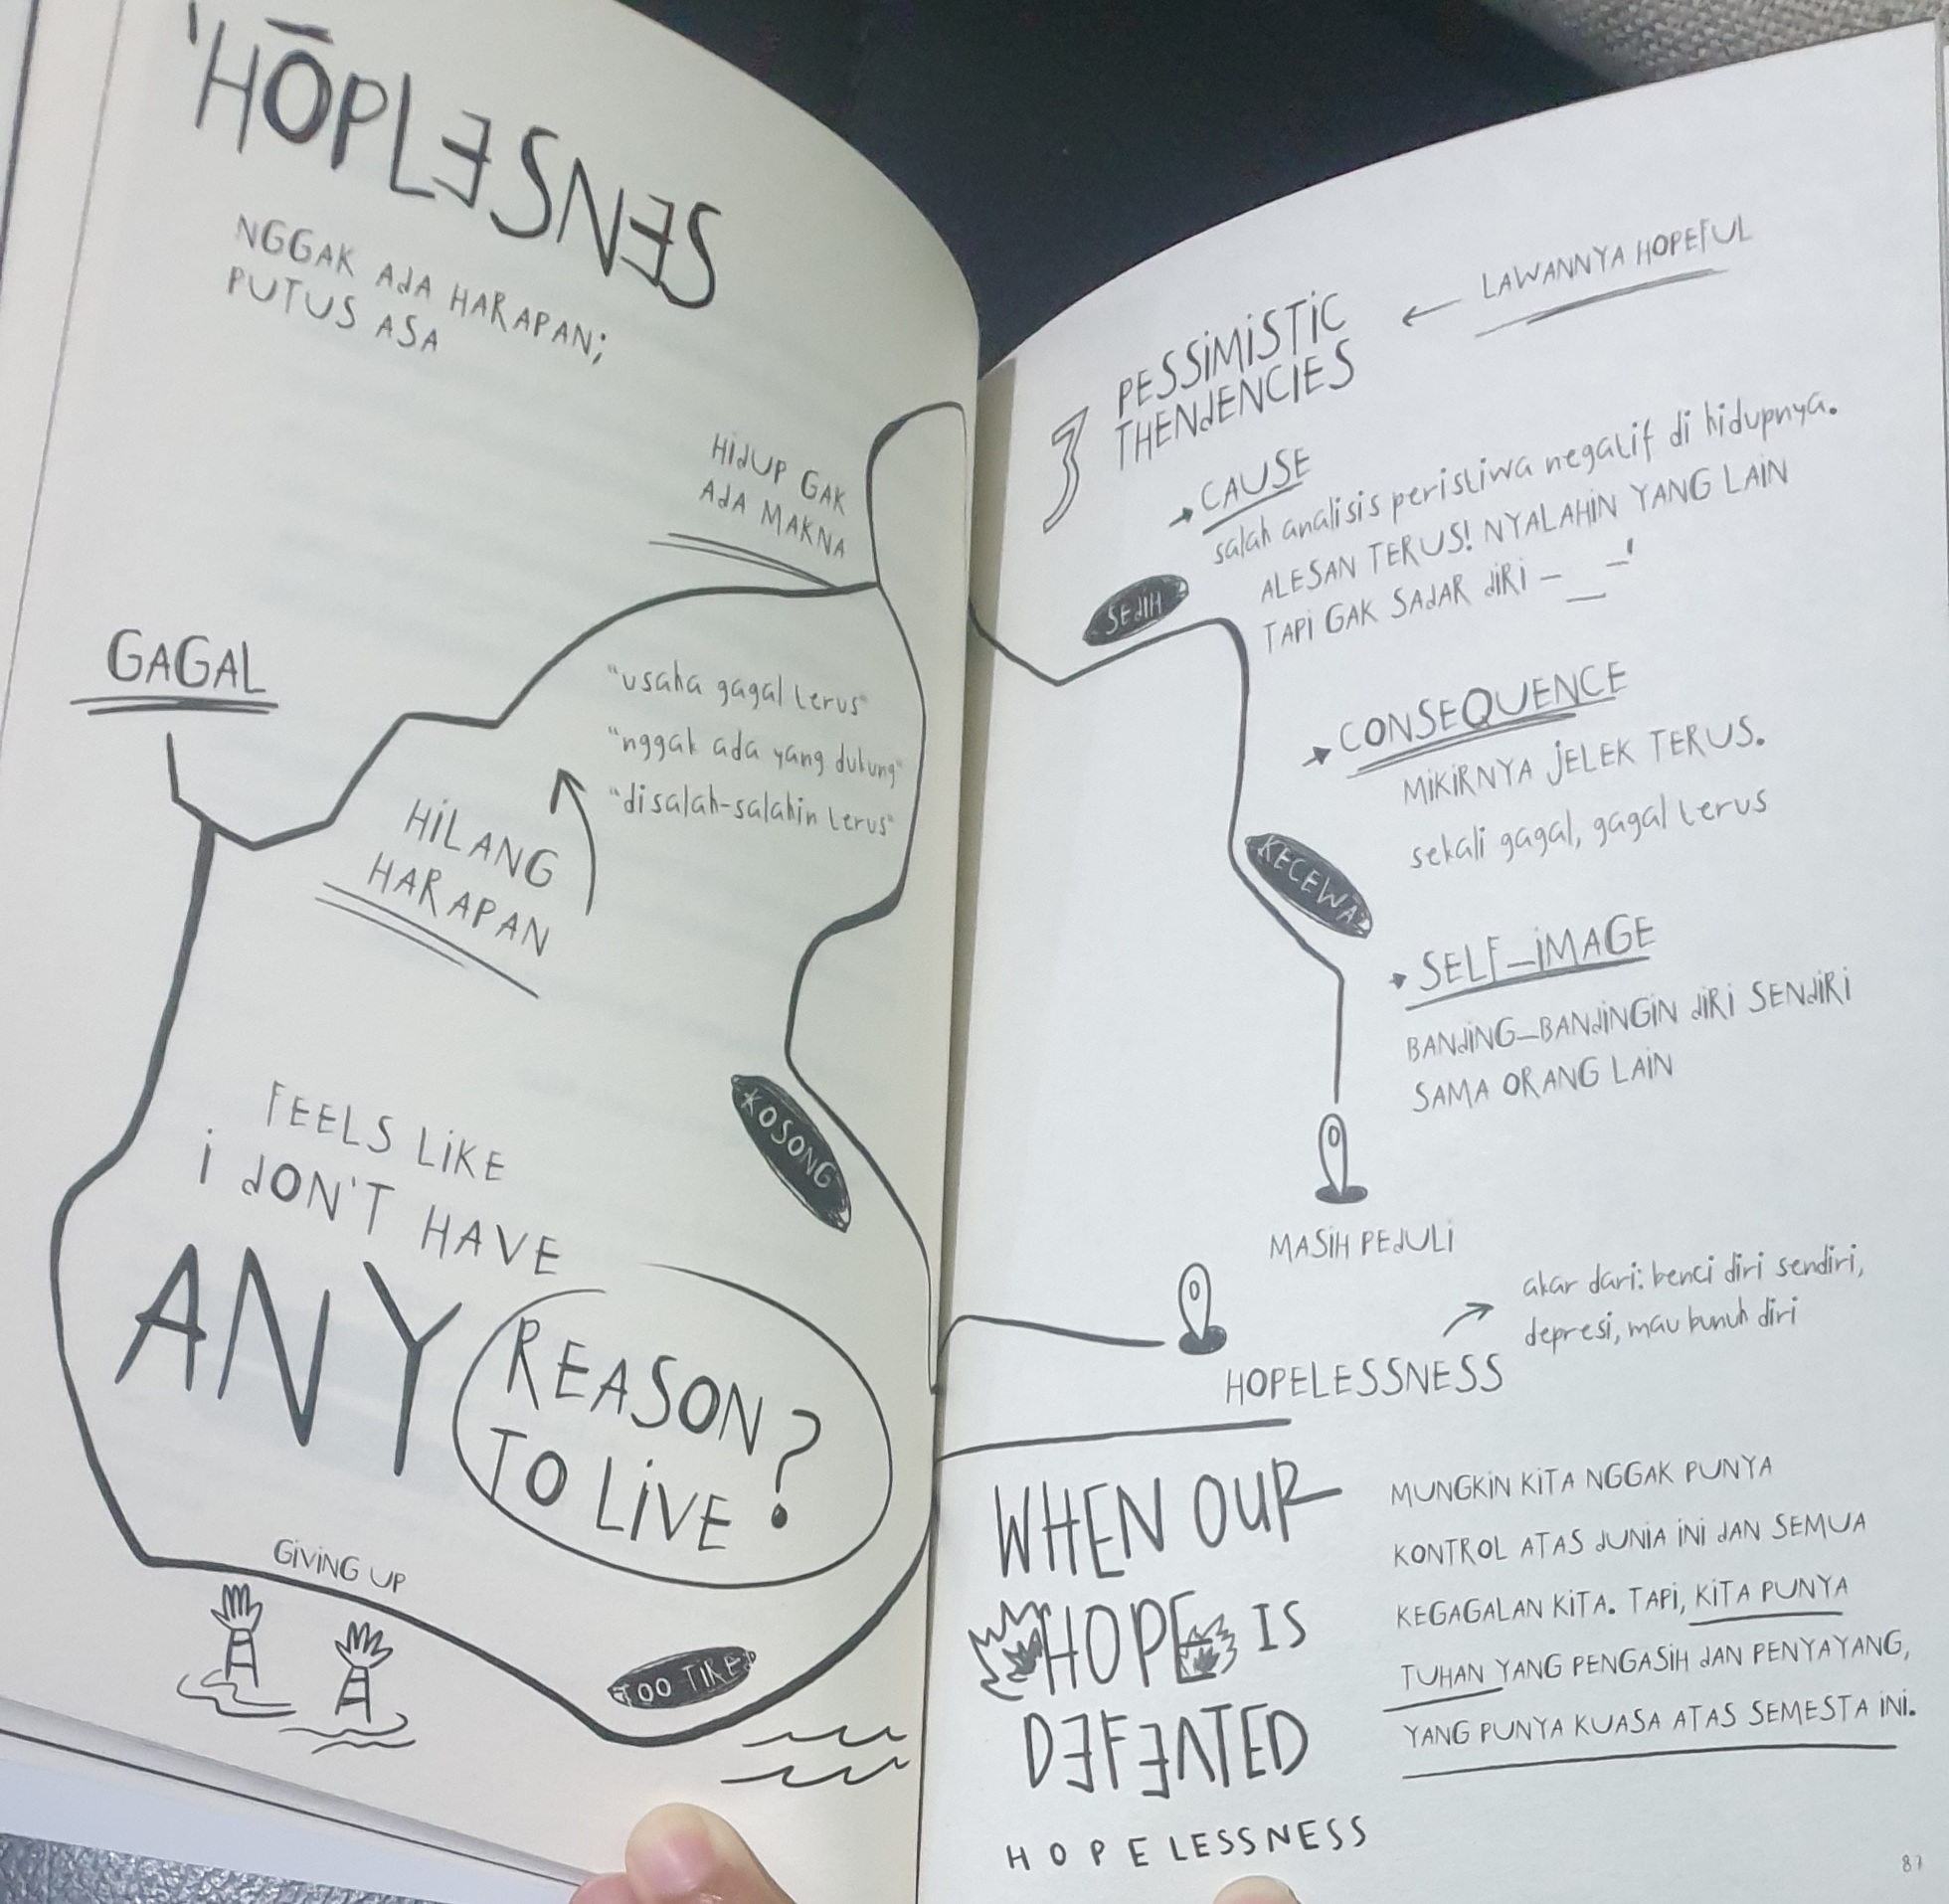 'HŌPLESNES
NGGAK ADA HARAPAN;
PUTUS ASA
HIDUP GAK
ADA MAKNA
GAGAL
"usaha gagal terus"
"nggak ada yang dukung"
"disalah-salahin terus"
HILANG
HARAPAN
KOSONG
FEELS LIKE
I DON'T HAVE
ANY
REASON
TO LIVE?
GIVING UP
TOO TIRED
LAWANNYA HOPEFUL
3 PESSIMISTIC
THENDENCIES
CAUSE
salah analisis peristiwa negatif di hidupnya.
ALESAN TERUS! NYALAHIN YANG LAIN
TAPI GAK SADAR DIRI – _ –'
SEDIH
CONSEQUENCE
MIKIRNYA JELEK TERUS.
sekali gagal, gagal terus
KECEWA
SELF_IMAGE
BANDING_BANDINGIN DIRI SENDIRI
SAMA ORANG LAIN
MASIH PEDULI
akar dari: benci diri sendiri,
depresi, mau bunuh diri
HOPELESSNESS
WHEN OUR
HOPE IS
DEFEATED
HOPELESSNESS
MUNGKIN KITA NGGAK PUNYA
KONTROL ATAS DUNIA INI DAN SEMUA
KEGAGALAN KITA. TAPI, KITA PUNYA
TUHAN YANG PENGASIH DAN PENYAYANG,
YANG PUNYA KUASA ATAS SEMESTA INI.
87